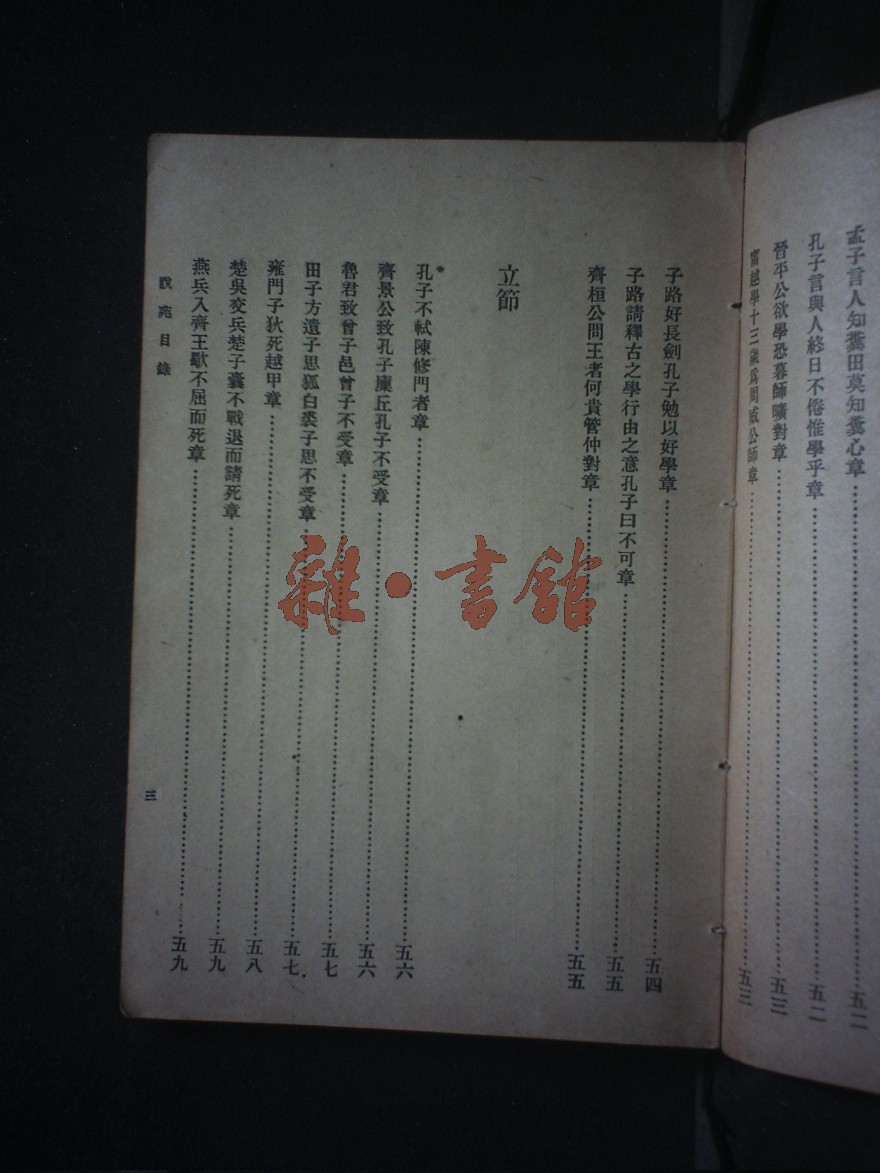 孟子言人知糞田莫知糞心章……五二
孔子言與人終日不倦惟學乎章……五二
晉平公欲學恐暮師曠對章……五三
甯越學十三歲爲周威公師章……五三
子路好長劍孔子勉以好學章……五四
子路請釋古之學行由之意孔子曰不可章……五五
齊桓公問王者何貴管仲對章……五五
立節
孔子不軾陳修門者章……五六
齊景公致孔子廩丘孔子不受章……五六
魯君致曾子邑曾子不受章……五七
田子方遺子思狐白裘子思不受章……五七
雍門子狄死越甲章……五八
楚吳交兵楚子囊不戰退而請死章……五九
燕兵入齊王歜不屈而死章……五九
說苑目錄
三
雜·書館